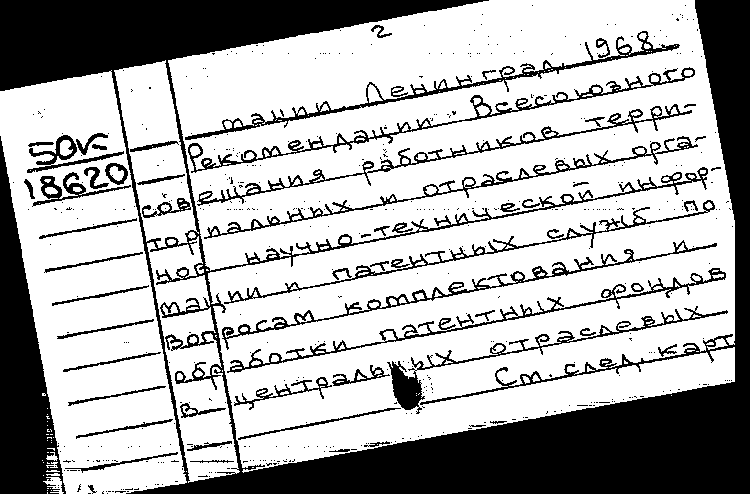 2
тации. Ленинград, 1968.
50к
18620
Рекомендации Всесоюзного
совещания работников терри-
ториальных и отраслевых орга-
нов научно-технической инфор-
мации и патентных служб по
вопросам комплектования и
обработки патентных фондов
в центральных отраслевых
См. след. карт